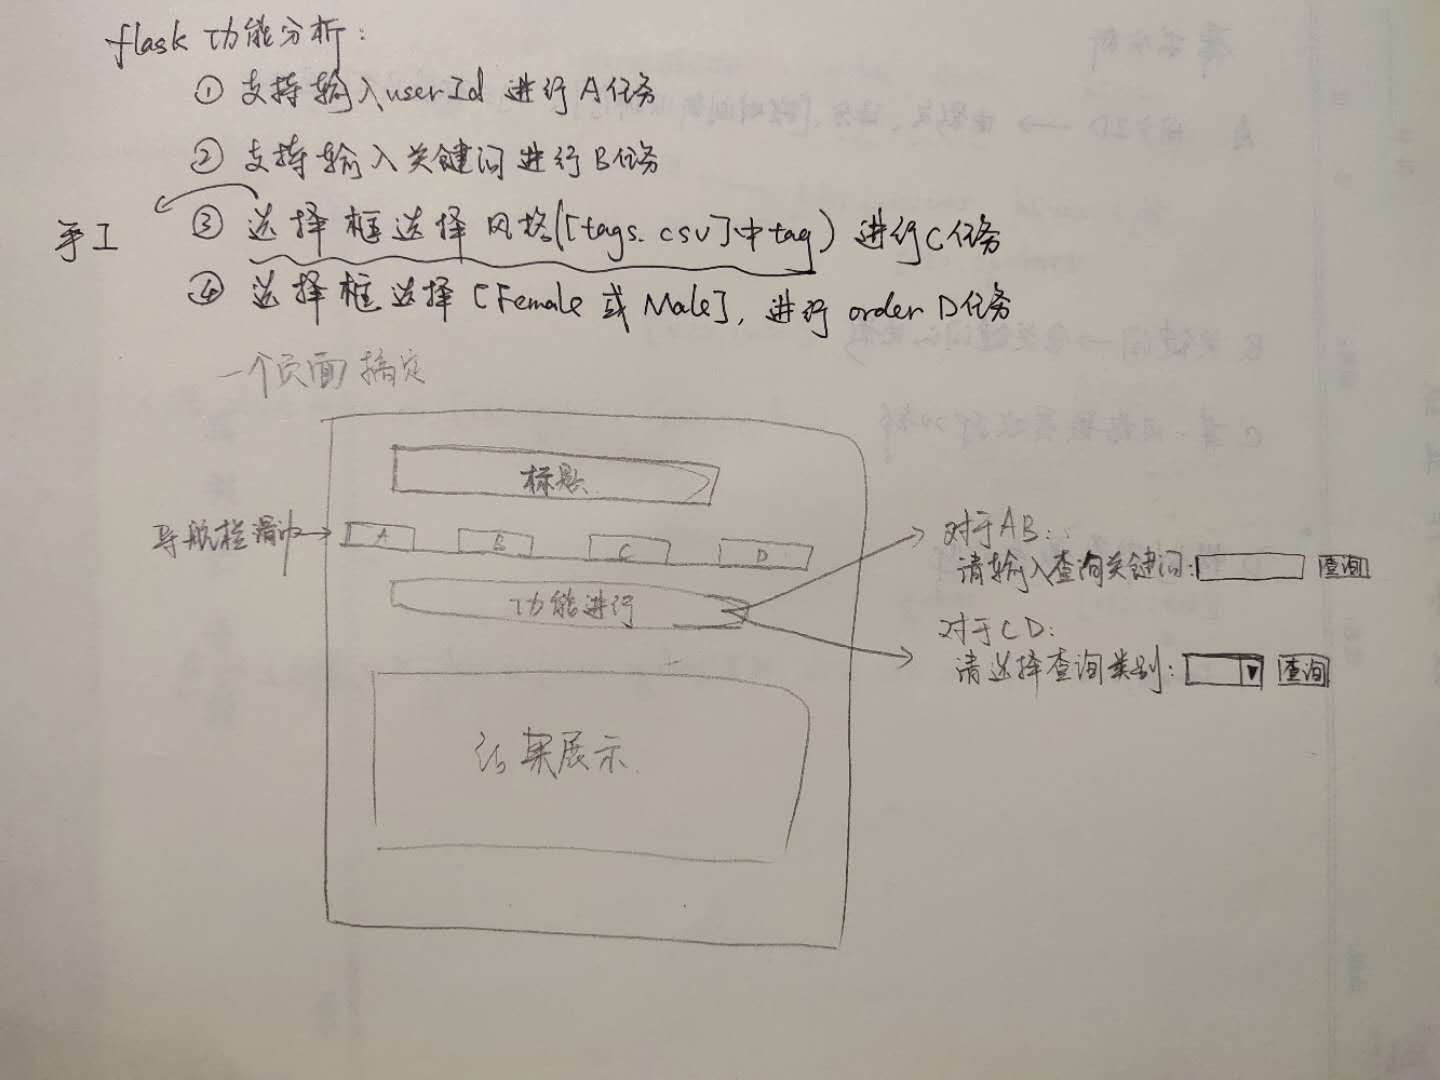 flask 功能分析:
① 支持输入userId 进行A任务
② 支持输入关键词进行B任务
手工
③ 选择框选择风格([tags.csv]中tag) 进行C任务
④ 选择框选择 [Female 或 Male], 进行 order D任务
一个页面搞定
标题
导航栏
A B C D
对于AB:
请输入查询关键词: 查询
功能进行
对于CD:
请选择查询类别: ▼ 查询
结果展示